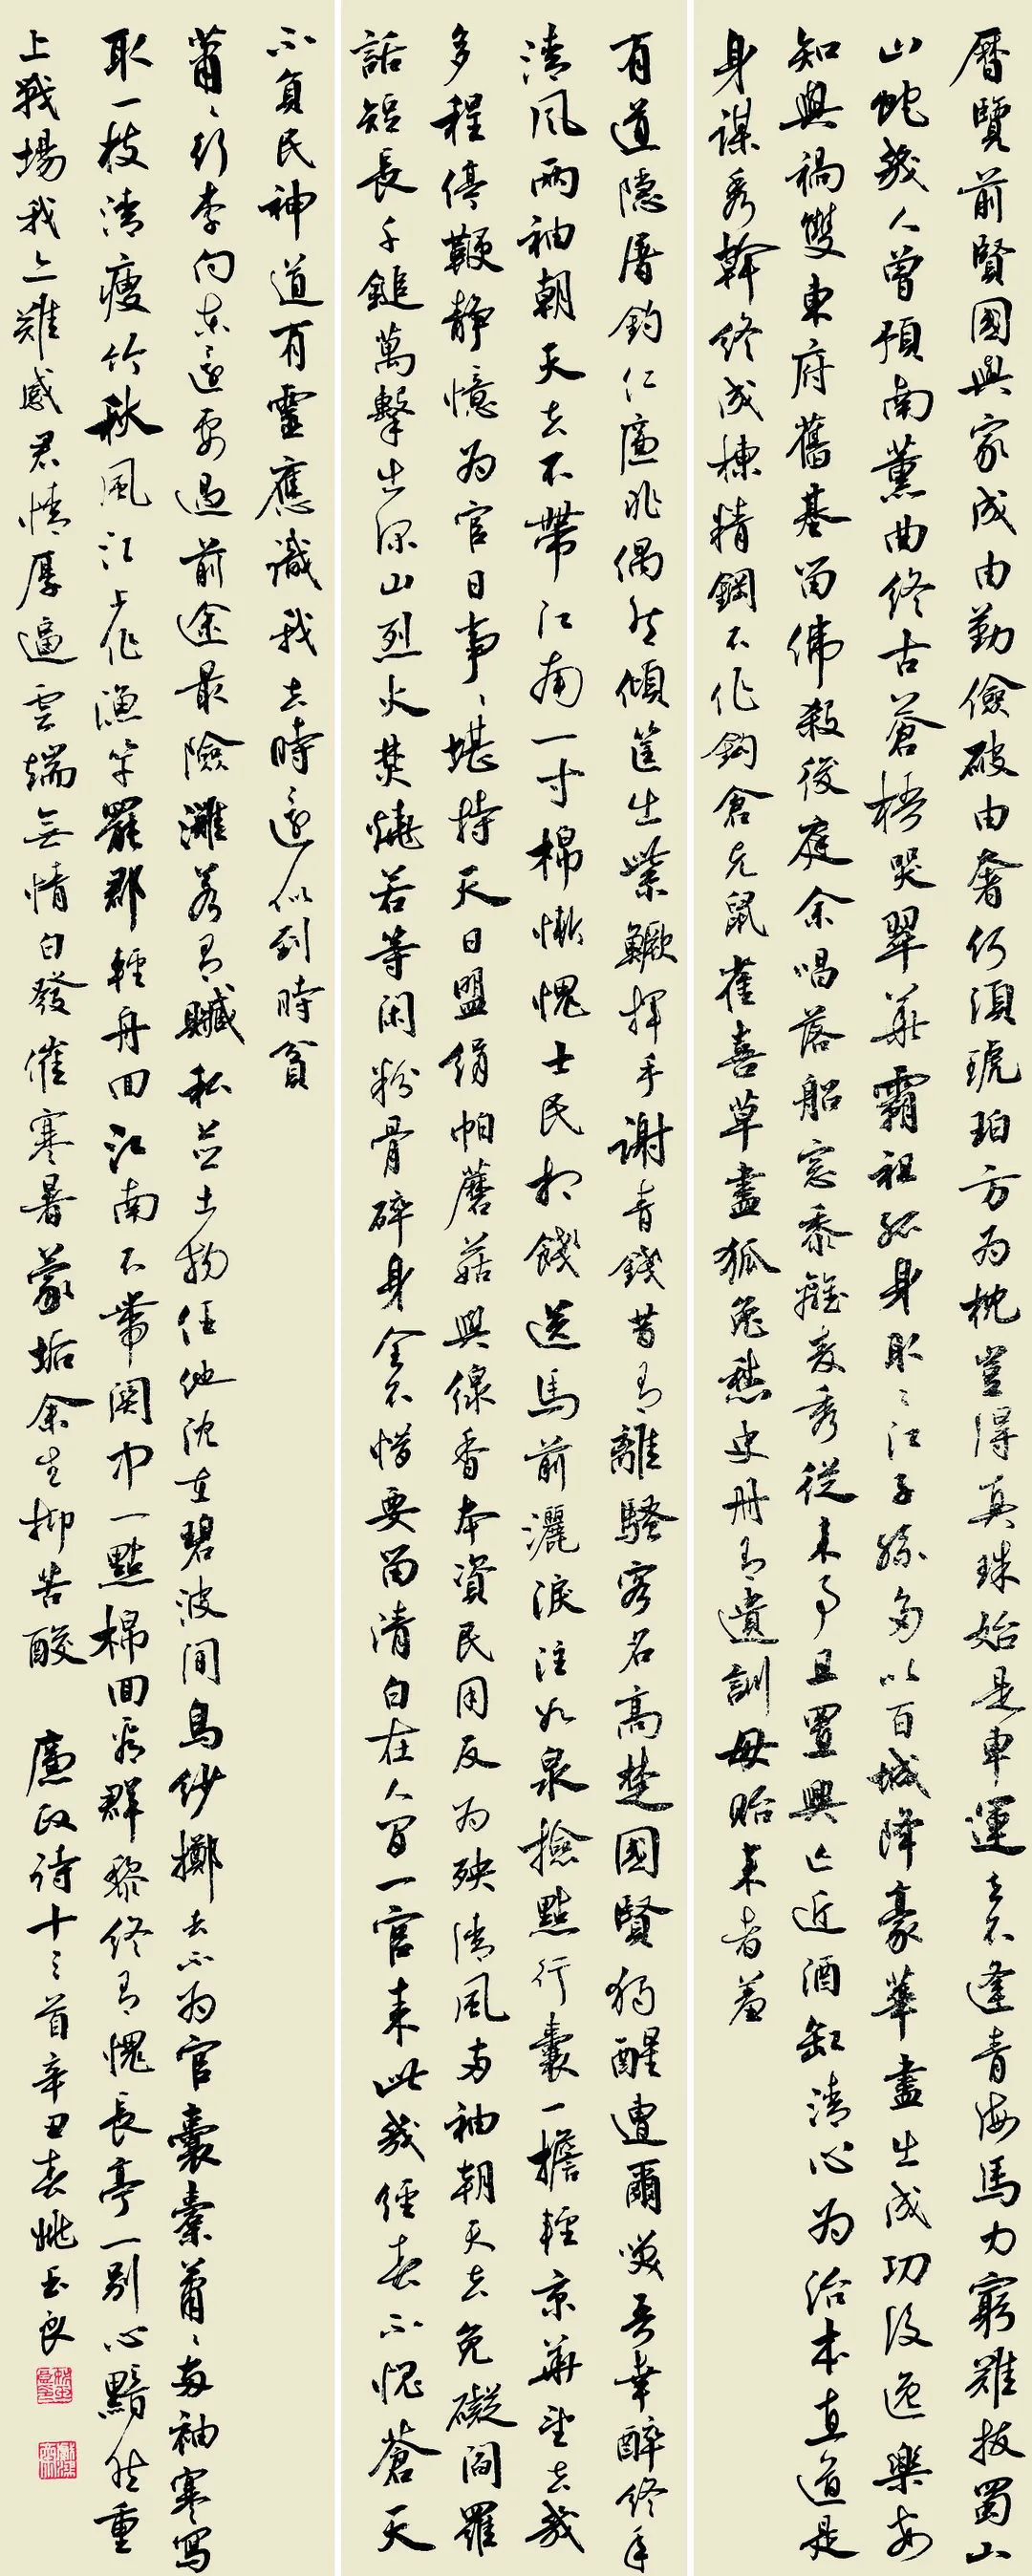 歷覽前賢國與家成由勤儉破由奢何須琥珀方為枕豈得真珠始是車運去不逢青海馬力窮難拔蜀山
山蛇幾人曾預南薰曲終古蒼梧哭翠華霸祖孤身取江子孫多以百城降豪華盡出成功後逸樂安
知與禍雙東府舊基留佛殺後庭余唱落船窓黍離麦秀從来事且置興亡近酒缸清心為治本直道是
身謀秀幹終成棟精鋼不作鈎倉充鼠雀喜草盡狐兔愁史册有遺訓毋貽来者羞
有道隱屠釣仁廉非偶然傾筐出紫鱖揮手謝青錢昔有離騷客名高楚國賢獨醒遭爾嘆吾幸醉終年
清風兩袖朝天去不帶江南一寸棉慚愧士民相餞送馬前灑淚注如泉撿點行囊一擔輕京華望去幾
多程停鞭靜憶為官日事〻堪持天日盟絹帕蘑菇與線香本資民用反為殃清風两袖朝天去免礙閻羅
話短長千鎚萬擊出深山烈火焚燒若等閑粉骨碎身全不惜要留清白在人間一官来此幾經春不愧蒼天
不負民神道有靈應識我去時還似到時貧
蕭〻行李向東還要過前途最險灘若有贓私並土物任他沈在碧波間烏紗擲去不為官囊橐蕭〻两袖寒寫
取一枝清瘦竹秋風江上作漁竿罷郡輕舟回江南不帶関中一點棉回看群黎終有愧長亭一别心黯然重
上戰場我亦難感君情厚逼雲端無情白發催寒暑蒙垢余生抑苦酸 廉政诗十三首辛丑春姚玉良